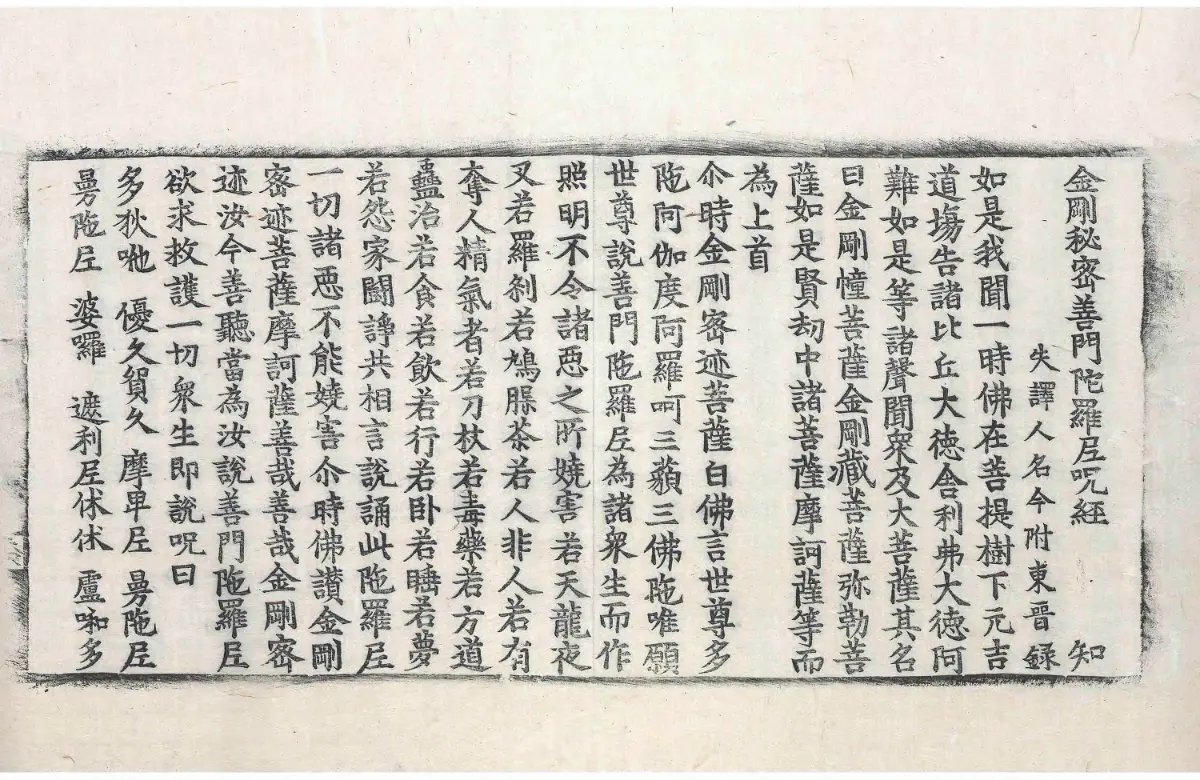 金剛秘密善門陀羅尼呪經 知
失譯人名今附東晉録
如是我聞一時佛在菩提樹下元吉
道塲告諸比丘大德舍利弗大德阿
難如是等諸聲聞衆及大菩薩其名
曰金剛幢菩薩金剛藏菩薩弥勒菩
薩如是賢劫中諸菩薩摩訶薩等而
為上首
尒時金剛密迹菩薩白佛言世尊多
陁阿伽度阿羅呵三藐三佛陁唯願
世尊說善門陁羅尼為諸衆生而作
照明不令諸惡之所嬈害若天龍夜
叉若羅刹若鳩腂茶若人非人若有
奪人精氣者若刀杖若毒藥若方道
蠱治若食若飲若行若卧若睡若夢
若怨家鬪諍共相言說誦此陁羅尼
一切諸惡不能嬈害尒時佛讃金剛
密迹菩薩摩訶薩善哉善哉金剛密
迹汝今善聽當為汝說善門陁羅尼
欲求救護一切衆生即說呪曰
多狄吔 優久賀久 摩卑尼 曼陁尼
曼陁尼 婆囉 遮利尼休休 盧㖿多